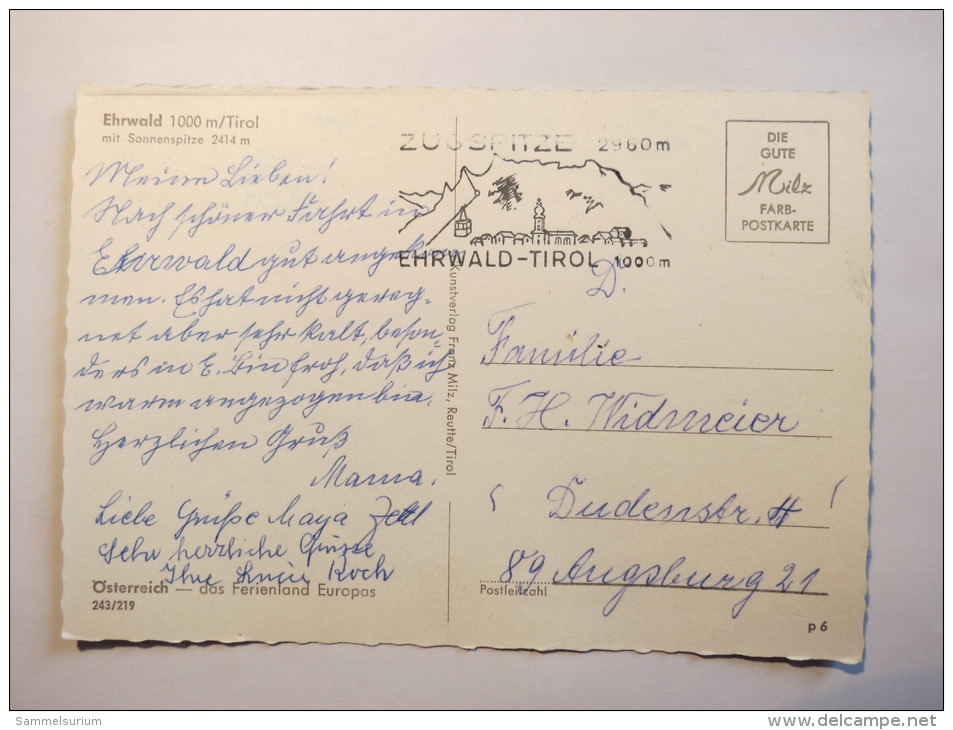 Ehrwald 1000 m/Tirol
mit Sonnenspitze 2414 m
Meine Lieben!
Nach schöner Fahrt in
Ehrwald gut angekom
men. Es hat nicht gereg-
net aber sehr kalt, beson-
ders in E. Bin froh, daß ich
warm angezogen bin.
Herzlichen Gruß
Mama.
Liebe Grüße Maya
Sehr herzliche Grüsse
Ihre Koch
Österreich — das Ferienland Europas
243/219
Kunstverlag Franz Milz, Reutte/Tirol
ZUGSPITZE 2960m
EHRWALD-TIROL 1000m
DIE
GUTE
Milz
FARB-
POSTKARTE
D.
Familie
F. H. Widmeier
Dudenstr.
89 Augsburg 21
Postleitzahl
p 6
Sammelsurium
delcampe.net